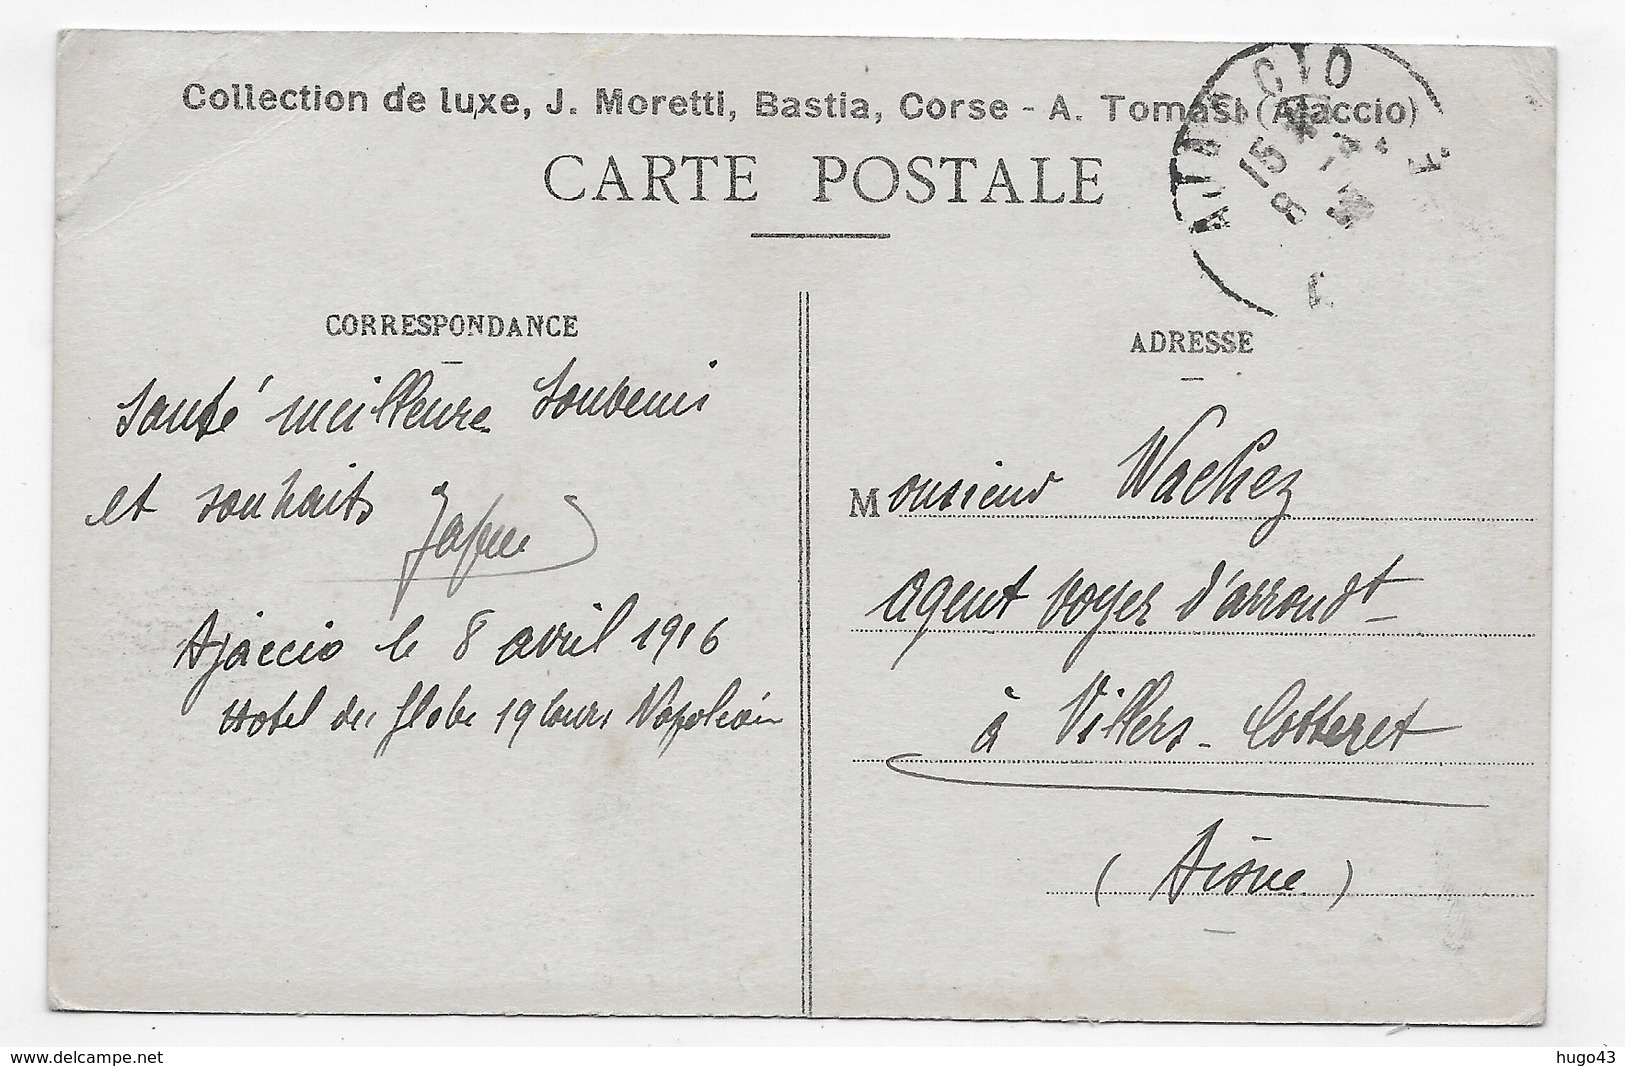 Collection de luxe, J. Moretti, Bastia, Corse - A. Tomasi (Ajaccio)
CARTE POSTALE
CORRESPONDANCE
Santé meilleure Souvenir
et souhaits
Ajaccio le 8 avril 1916
Hotel du Globe 19 Cours Napoléon
ADRESSE
Monsieur Wachez
agent voyer d'arrondt
à Villers-Cotteret
(Aisne)
www.delcampe.net
hugo43